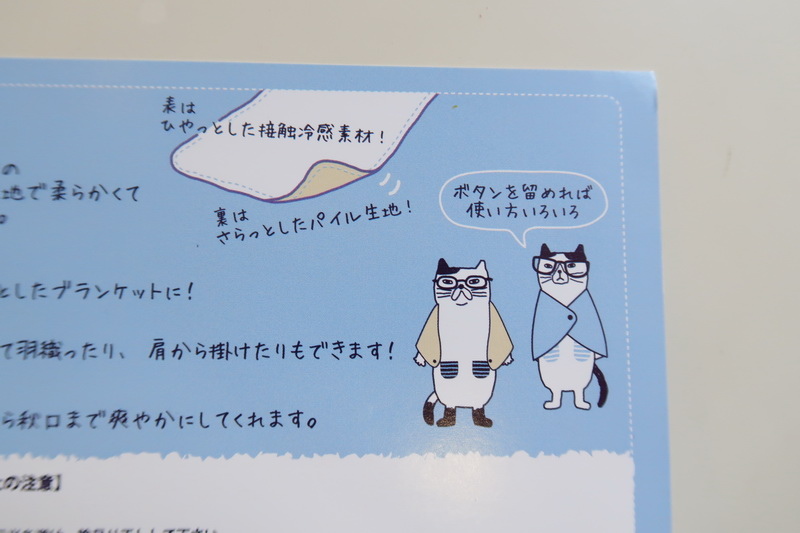 表は
ひやっとした接触冷感素材!
の
地で柔らかくて
裏は
さらっとしたパイル生地!
ボタンを留めれば
使い方いろいろ
としたブランケットに!
て羽織ったり、肩から掛けたりもできます!
ら秋口まで爽やかにしてくれます。
の注意】